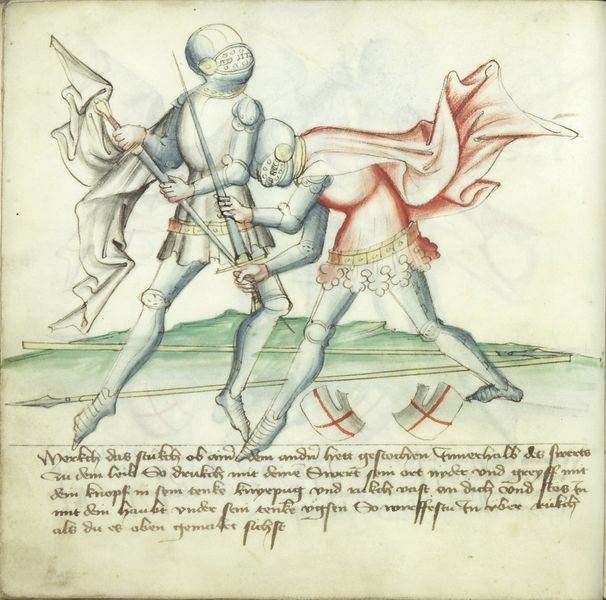 Merkch das stukch ob ainer dem andern hett gestochen Innerhalb des swerts
zu dem leib So drukch mit deinem Swert sein ort nyder und greyff mit
dem knopf in sein tenke knyepug und rukch vast an dich und stos In
mit dem haubt under sein tenke ygsen So wirffestu In uber rukch
als du es oben gemalet sichst